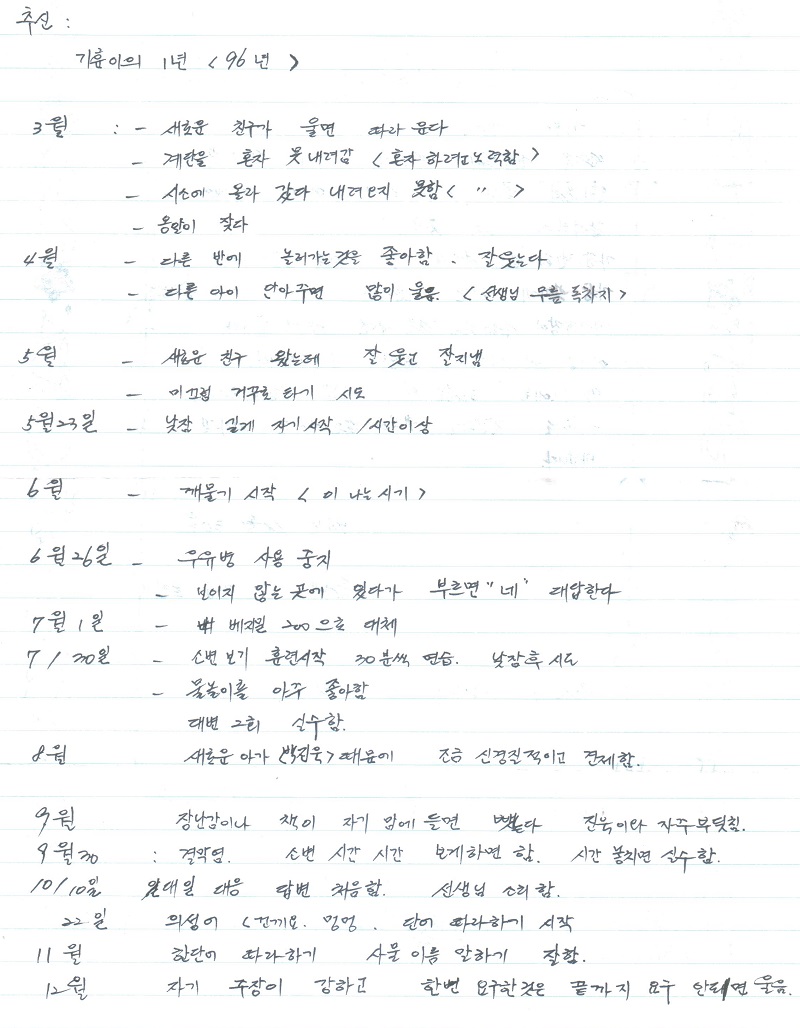 추신 :
기훈이의 1년 < 96년 >
3월 : - 새로운 친구가 울면 따라 운다
- 계단을 혼자 못내려감 < 혼자 하려고 노력함 >
- 시소에 올라 갔다 내려오지 못함 < " >
- 옹알이 잦다
4월 - 다른 반에 놀러가는것을 좋아함. 잘웃는다
- 다른 아이 안아주면 많이 울음. < 선생님 무릎 독차지 >
5월 - 새로운 친구 왔는데 잘 웃고 잘지냄
- 미끄럼 거꾸로 타기 시도
5월23일 - 낮잠 길게 자기시작 1시간이상
6월 - 깨물기 시작 < 이 나는시기 >
6월26일 - 우유병 사용 중지
- 보이지 않는 곳에 있다가 부르면 "네" 대답한다
7월 1일 - 베지밀 200으로 대체
7/30일 - 소변보기 훈련시작 30분씩 연습. 낮잠후 시도
- 물놀이를 아주 좋아함
대변 2회 실수함.
8월 새로운 아가 <박진욱> 때문에 조금 신경질적이고 견제함.
9월 장난감이나 책이 자기 맘에 들면 뺏는다 진욱이와 자주부딪침.
9월30 : 결막염. 소변 시간 시간 보게하면 함. 시간 놓치면 실수함.
10/10일 일대일 대응 답변 처음함. 선생님 소리함.
22일 의성어 < 멍멍. 단어 따라하기 시작
11월 한단어 따라하기 사물 이름 말하기 잘함.
12월 자기 주장이 강하고 한번 요구한것은 끝까지 요구 안되면 울음.